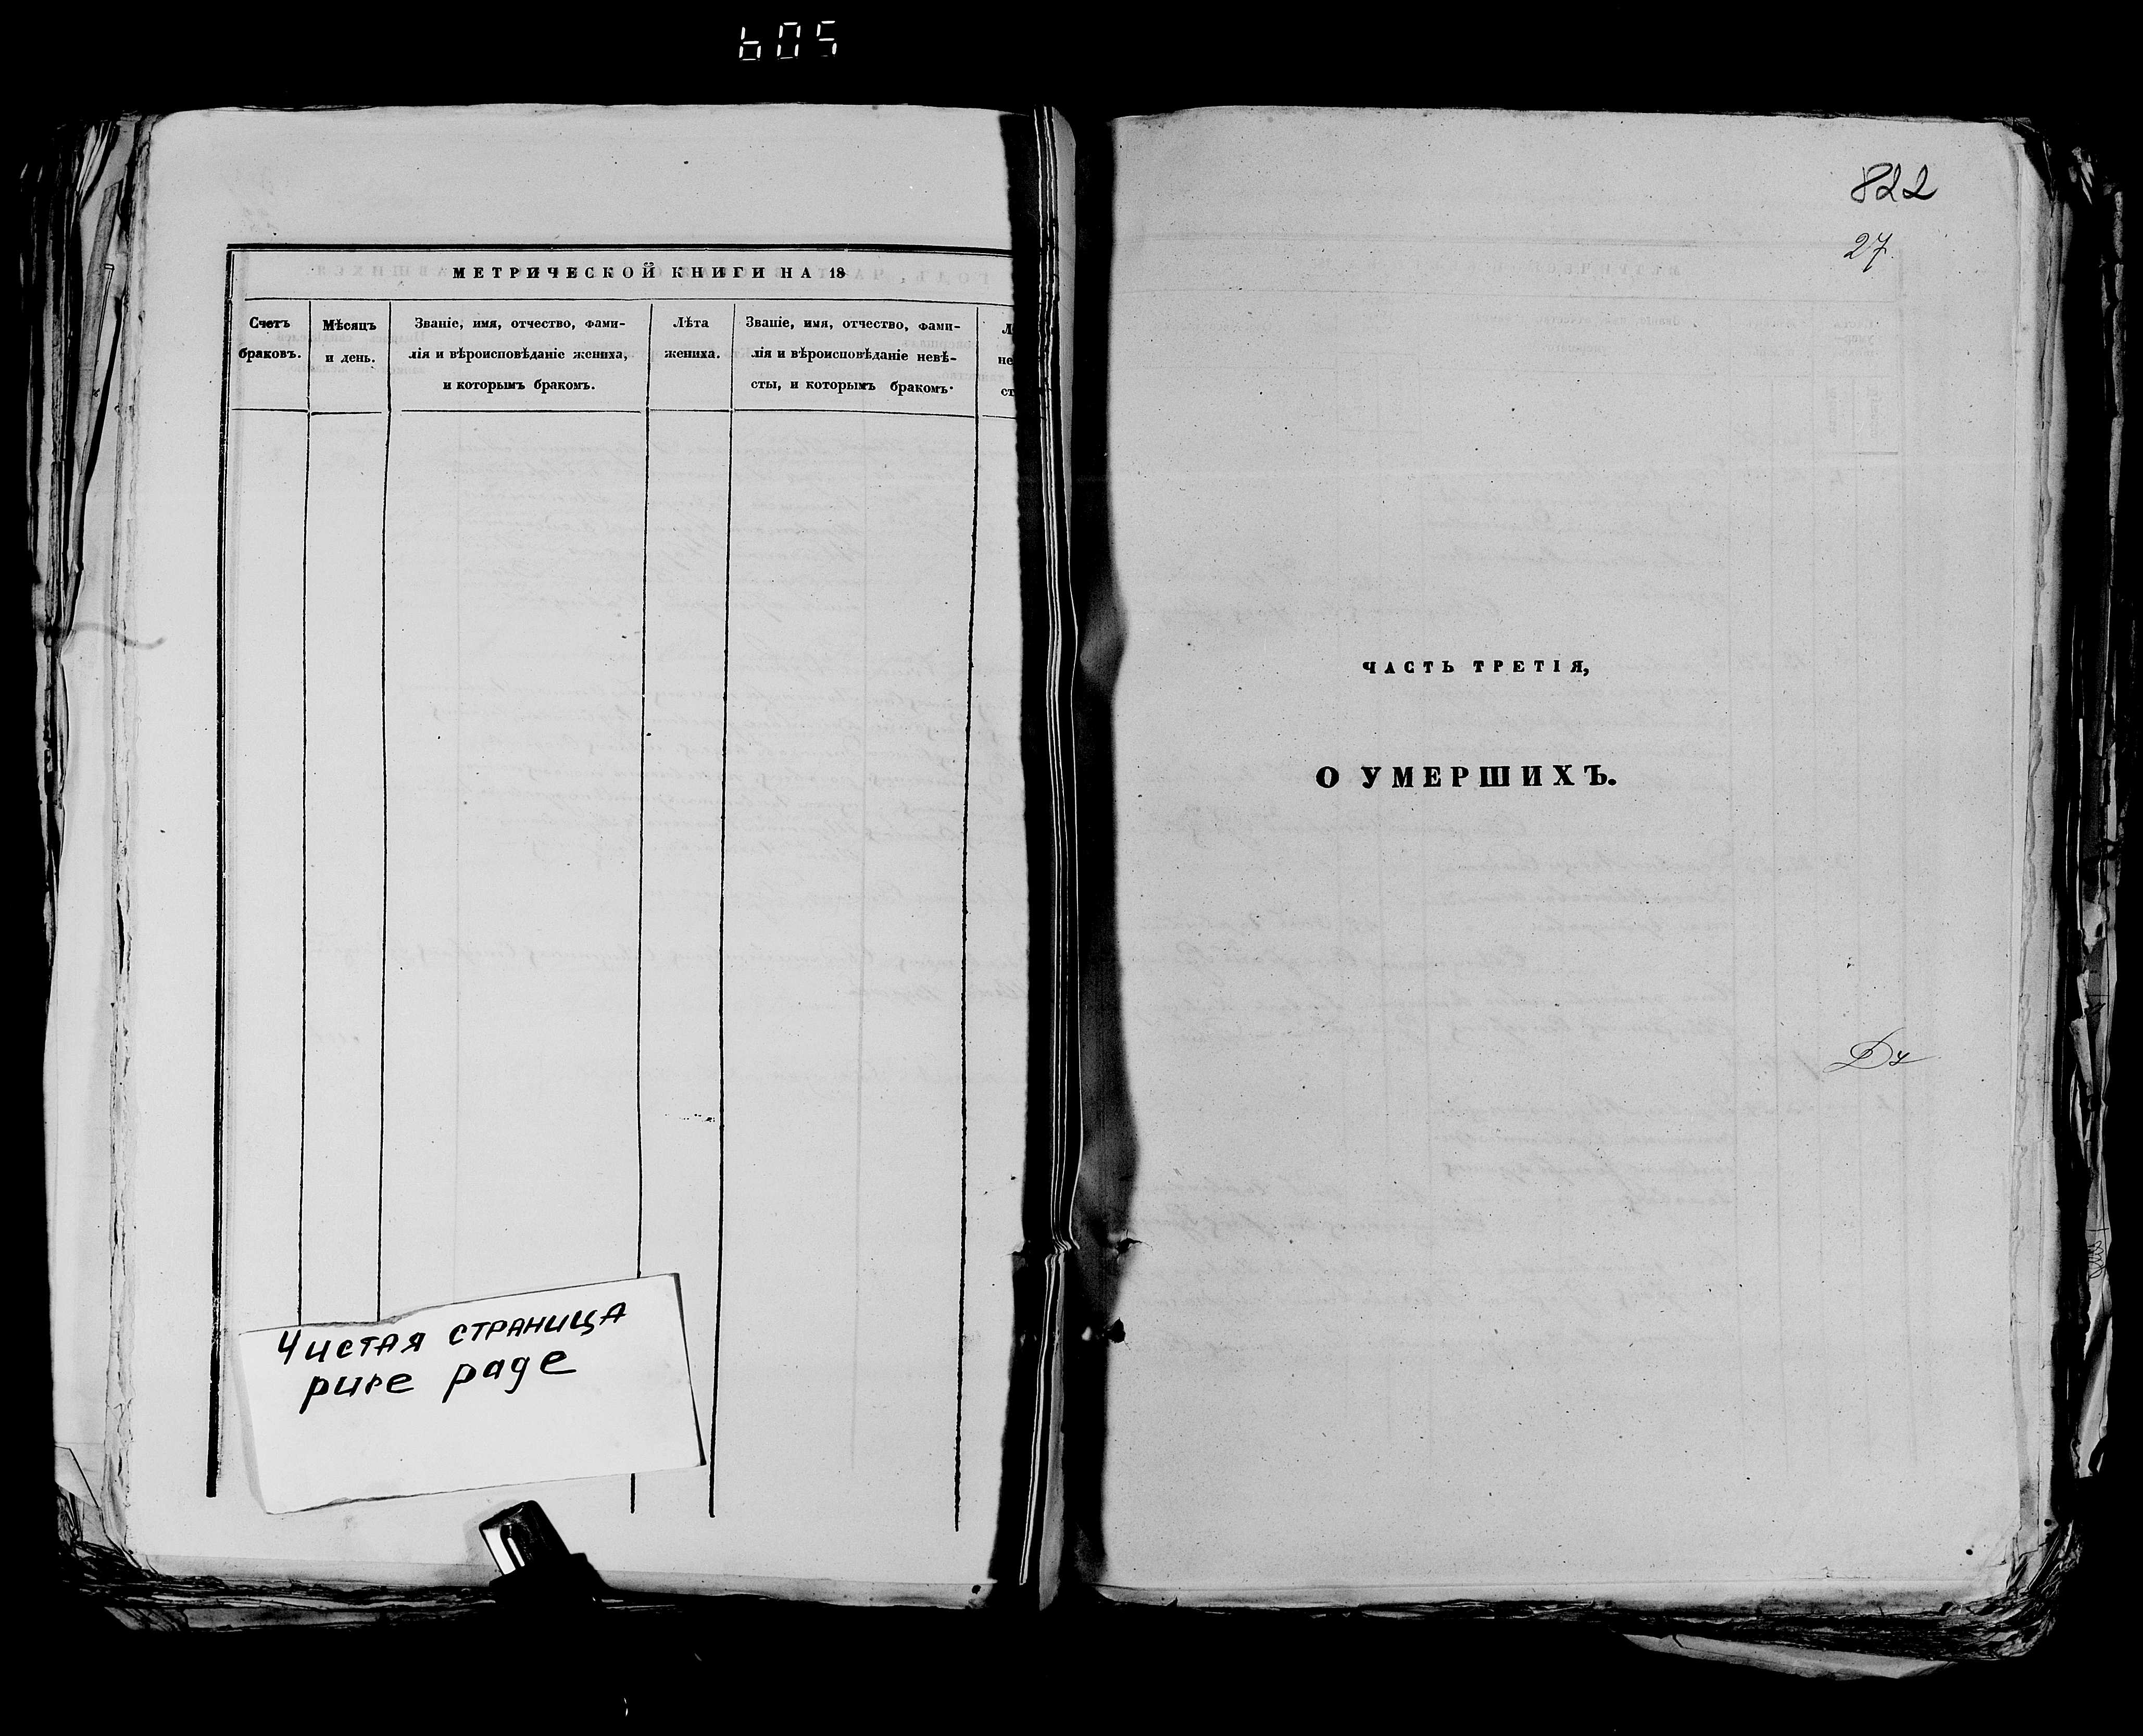 605
МЕТРИЧЕСКОЙ КНИГИ НА 18
Счетъ браковъ.
Мѣсяцъ и день.
Званіе, имя, отчество, фами-
лія и вѣроисповѣданіе жениха,
и которымъ бракомъ.
Лѣта жениха.
Званіе, имя, отчество, фами-
лія и вѣроисповѣданіе невѣ-
сты, и которымъ бракомъ.
Чистая страница
pure page
822
27
ЧАСТЬ ТРЕТІЯ,
О УМЕРШИХЪ.